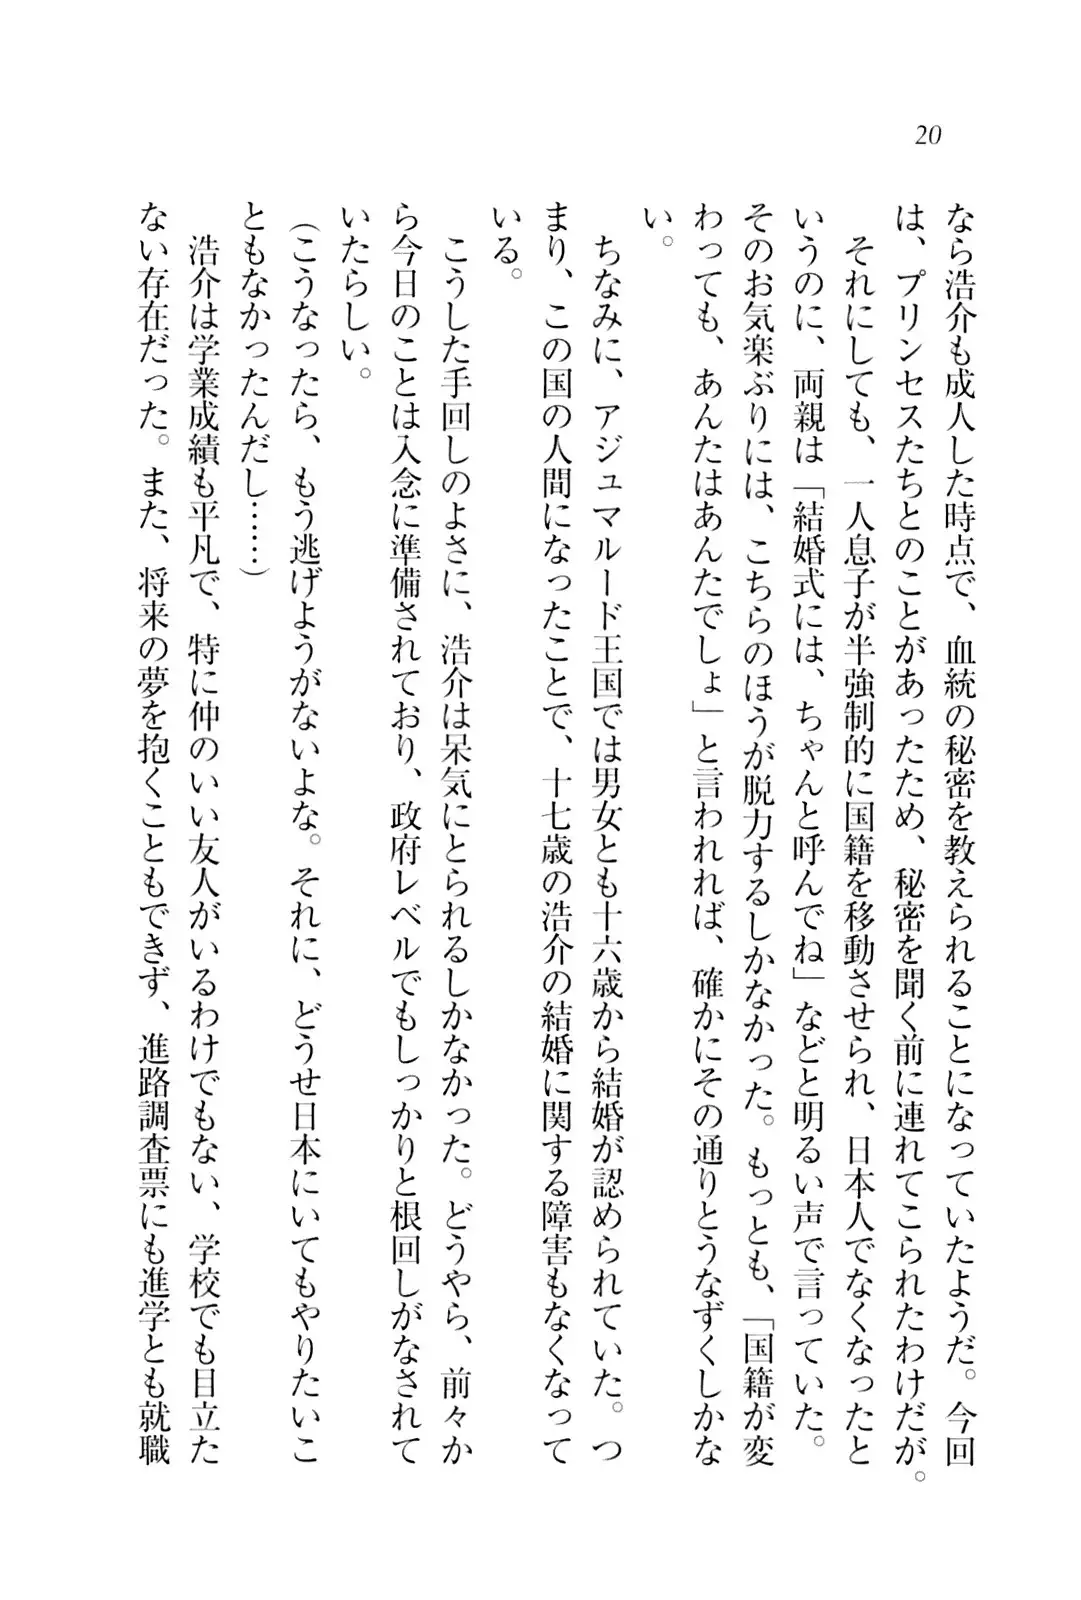 20
なら浩介も成人した時点で、血統の秘密を教えられることになっていたようだ。今回
は、プリンセスたちとのことがあったため、秘密を聞く前に連れてこられたわけだが。
それにしても、一人息子が半強制的に国籍を移動させられ、日本人でなくなったと
いうのに、両親は「結婚式には、ちゃんと呼んでね」などと明るい声で言っていた。
そのお気楽ぶりには、こちらのほうが脱力するしかなかった。もっとも、「国籍が変
わっても、あんたはあんたでしょ」と言われれば、確かにその通りとうなずくしかな
い。
ちなみに、アジュマルード王国では男女とも十六歳から結婚が認められていた。つ
まり、この国の人間になったことで、十七歳の浩介の結婚に関する障害もなくなって
いる。
こうした手回しのよさに、浩介は呆気にとられるしかなかった。どうやら、前々か
ら今日のことは入念に準備されており、政府レベルでもしっかりと根回しがなされて
いたらしい。
（こうなったら、もう逃げようがないよな。それに、どうせ日本にいてもやりたいこ
ともなかったんだし……）
浩介は学業成績も平凡で、特に仲のいい友人がいるわけでもない、学校でも目立た
ない存在だった。また、将来の夢を抱くこともできず、進路調査票にも進学とも就職